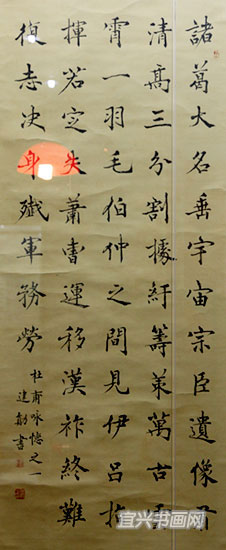 諸葛大名垂宇宙宗臣遺像肅
清高三分割據紆籌策萬古雲
霄一羽毛伯仲之間見伊呂指
揮若定失蕭曹運移漢祚終難
復志决身殲軍務勞
杜甫詠懷之一
建勛書
宜兴书画网